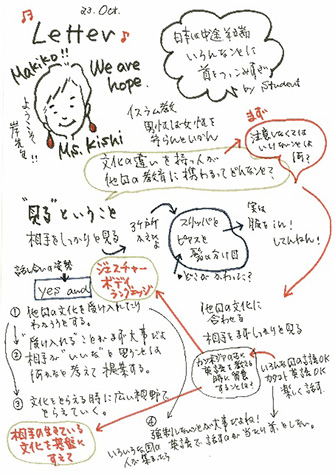 23. Oct.
Letter
Makiko!!
We are
hope.
ようこそ
岸先生!!
Ms. Kishi
日本は中途半端
いろんなことに
首をつっこみすぎ
by student
イスラム教
男性は女性を
守らんといかん
まず
注意しなくては
いけないことは
何?
文化の違いを持つ人が
他国の教育に携わってどんなこと?
"見る"ということ
相手をしっかりと見る
3ヶ所
かえるよ
スリッパと
ピアスと
髪の分け目
どこがかわった?
実は
服を in!
しとんねん!
話し合いの姿勢
yes and
ジェスチャー
ボディ
ランゲッジ
① 他国の文化を受け入れたり
わかろうとする。
"受け入れる"ことがまず大事だよ
② 相手が"いいな"と思うことは
何かなと考えて提案する。
③ 文化をとらえる時に広い視野で
とらえていく。
他国の文化に
合わせる
相手をまずしっかりと見る
カンボジアの子に
英語を教える
時に留意
することは?
いろんな国の言語OK
カタコト英語OK
楽しく話す。
④
強制しないことが大事だよね!
いろいろな国の
人が集まったら
英語で、話すのが当たり前としない。
相手の生きている
文化を基盤に
すえて